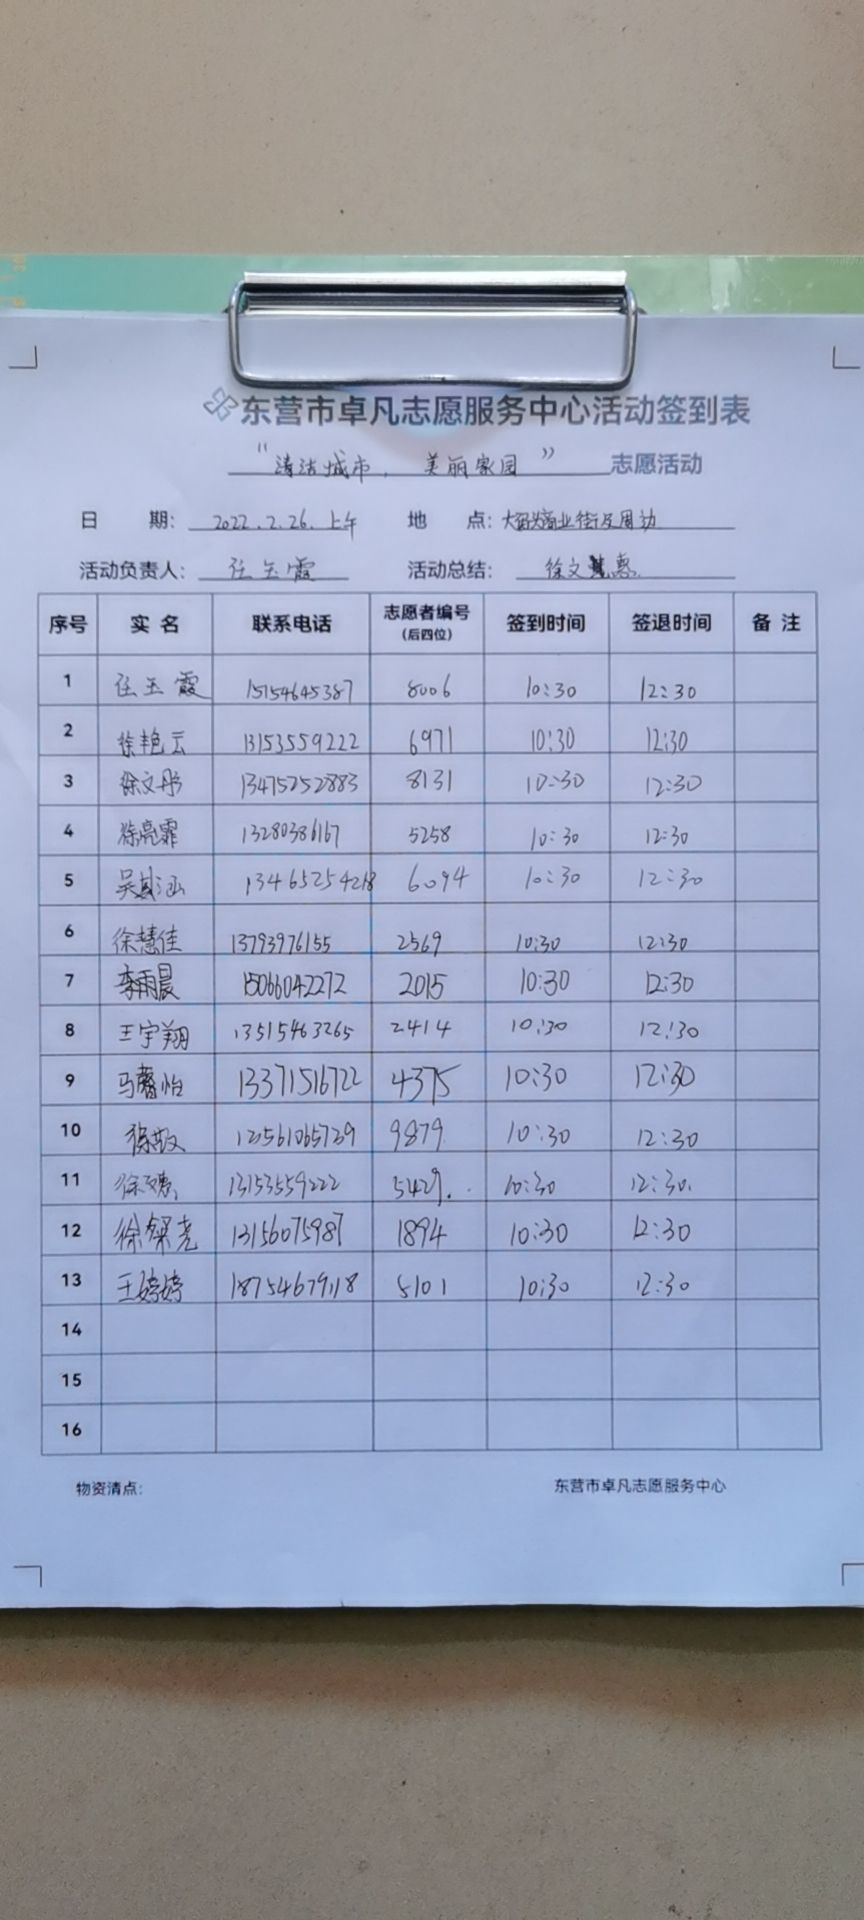 东营市卓凡志愿服务中心活动签到表
“清洁城市，美丽家园” 志愿活动
日 期: 2022.2.26.上午 地 点: 商业街及周边
活动负责人: 任玉霞 活动总结: 徐文惠
序号 实名 联系电话 志愿者编号(后四位) 签到时间 签退时间 备注
1 任玉霞 15154645387 8006 10:30 12:30
2 徐艳云 13153559222 6971 10:30 12:30
3 徐文彤 13475252883 8131 10:30 12:30
4 徐亮霏 13280386167 5258 10:30 12:30
5 6094 10:30 12:30
6 徐慧佳 13793976155 2569 10:30 12:30
7 李雨晨 15066042272 2015 10:30 12:30
8 王宇翔 13515463265 2414 10:30 12:30
9 马馨怡 13371516722 4375 10:30 12:30
10 9879 10:30 12:30
11 13153559222 5429. 10:30 12:30.
12 徐琛尧 13156075987 1894 10:30 12:30
13 王婷婷 18754679118 5101 10:30 12:30
14
15
16
物资清点: 东营市卓凡志愿服务中心